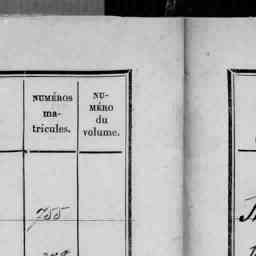 NUMÉROS
ma-
tricules.
NU-
MÉRO
du
volume.
755